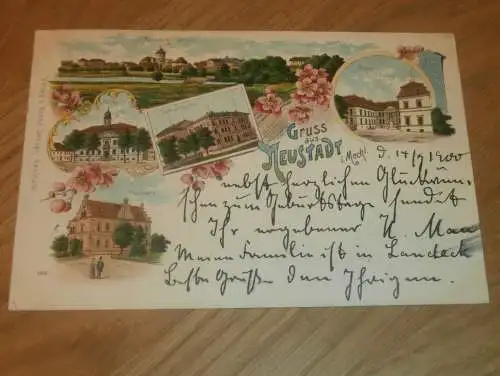 Gruss
aus
NEUSTADT
i. Meckl.
d. 14/7 1900
nebst herzlichen Glückwün-
schen zum Geburtstage sendet
Ihr ergebener H. Maa
Meine Familie ist in Landeck
Beste Grüße den Ihrigen.